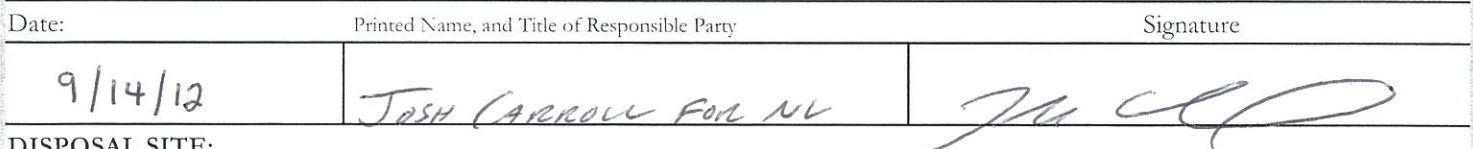 Date: Printed Name, and Title of Responsible Party Signature
9/14/12 JOSH CARROLL FOR NL
DISPOSAL SITE: